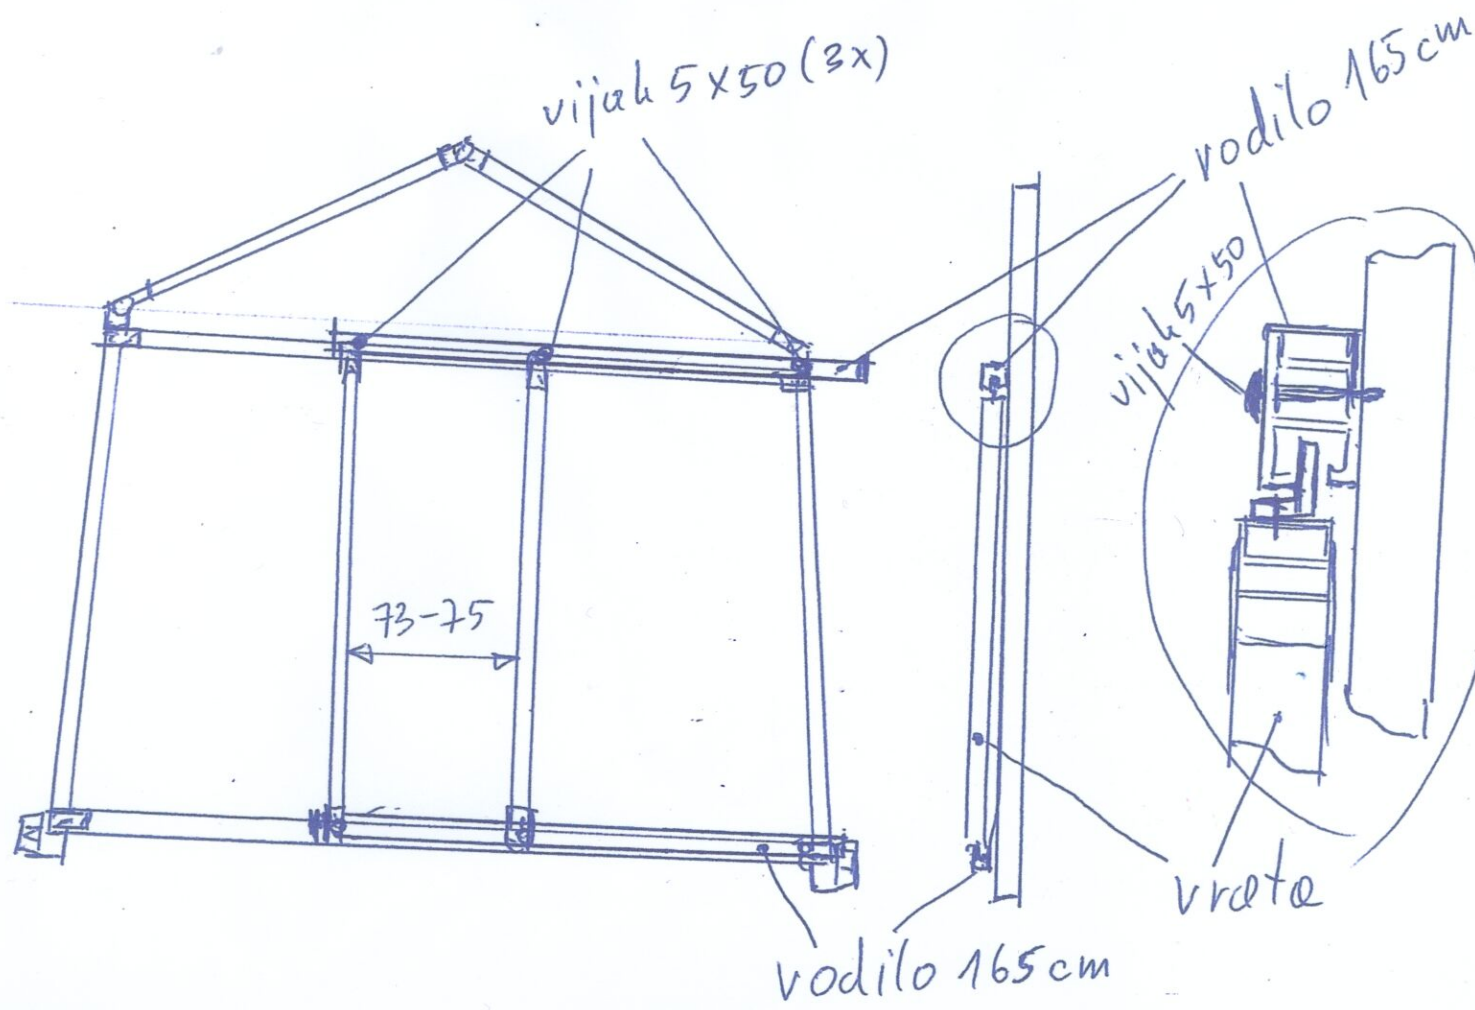 vijak 5x50 (3x)
vodilo 165cm
vijak 5x50
73-75
vrata
vodilo 165cm